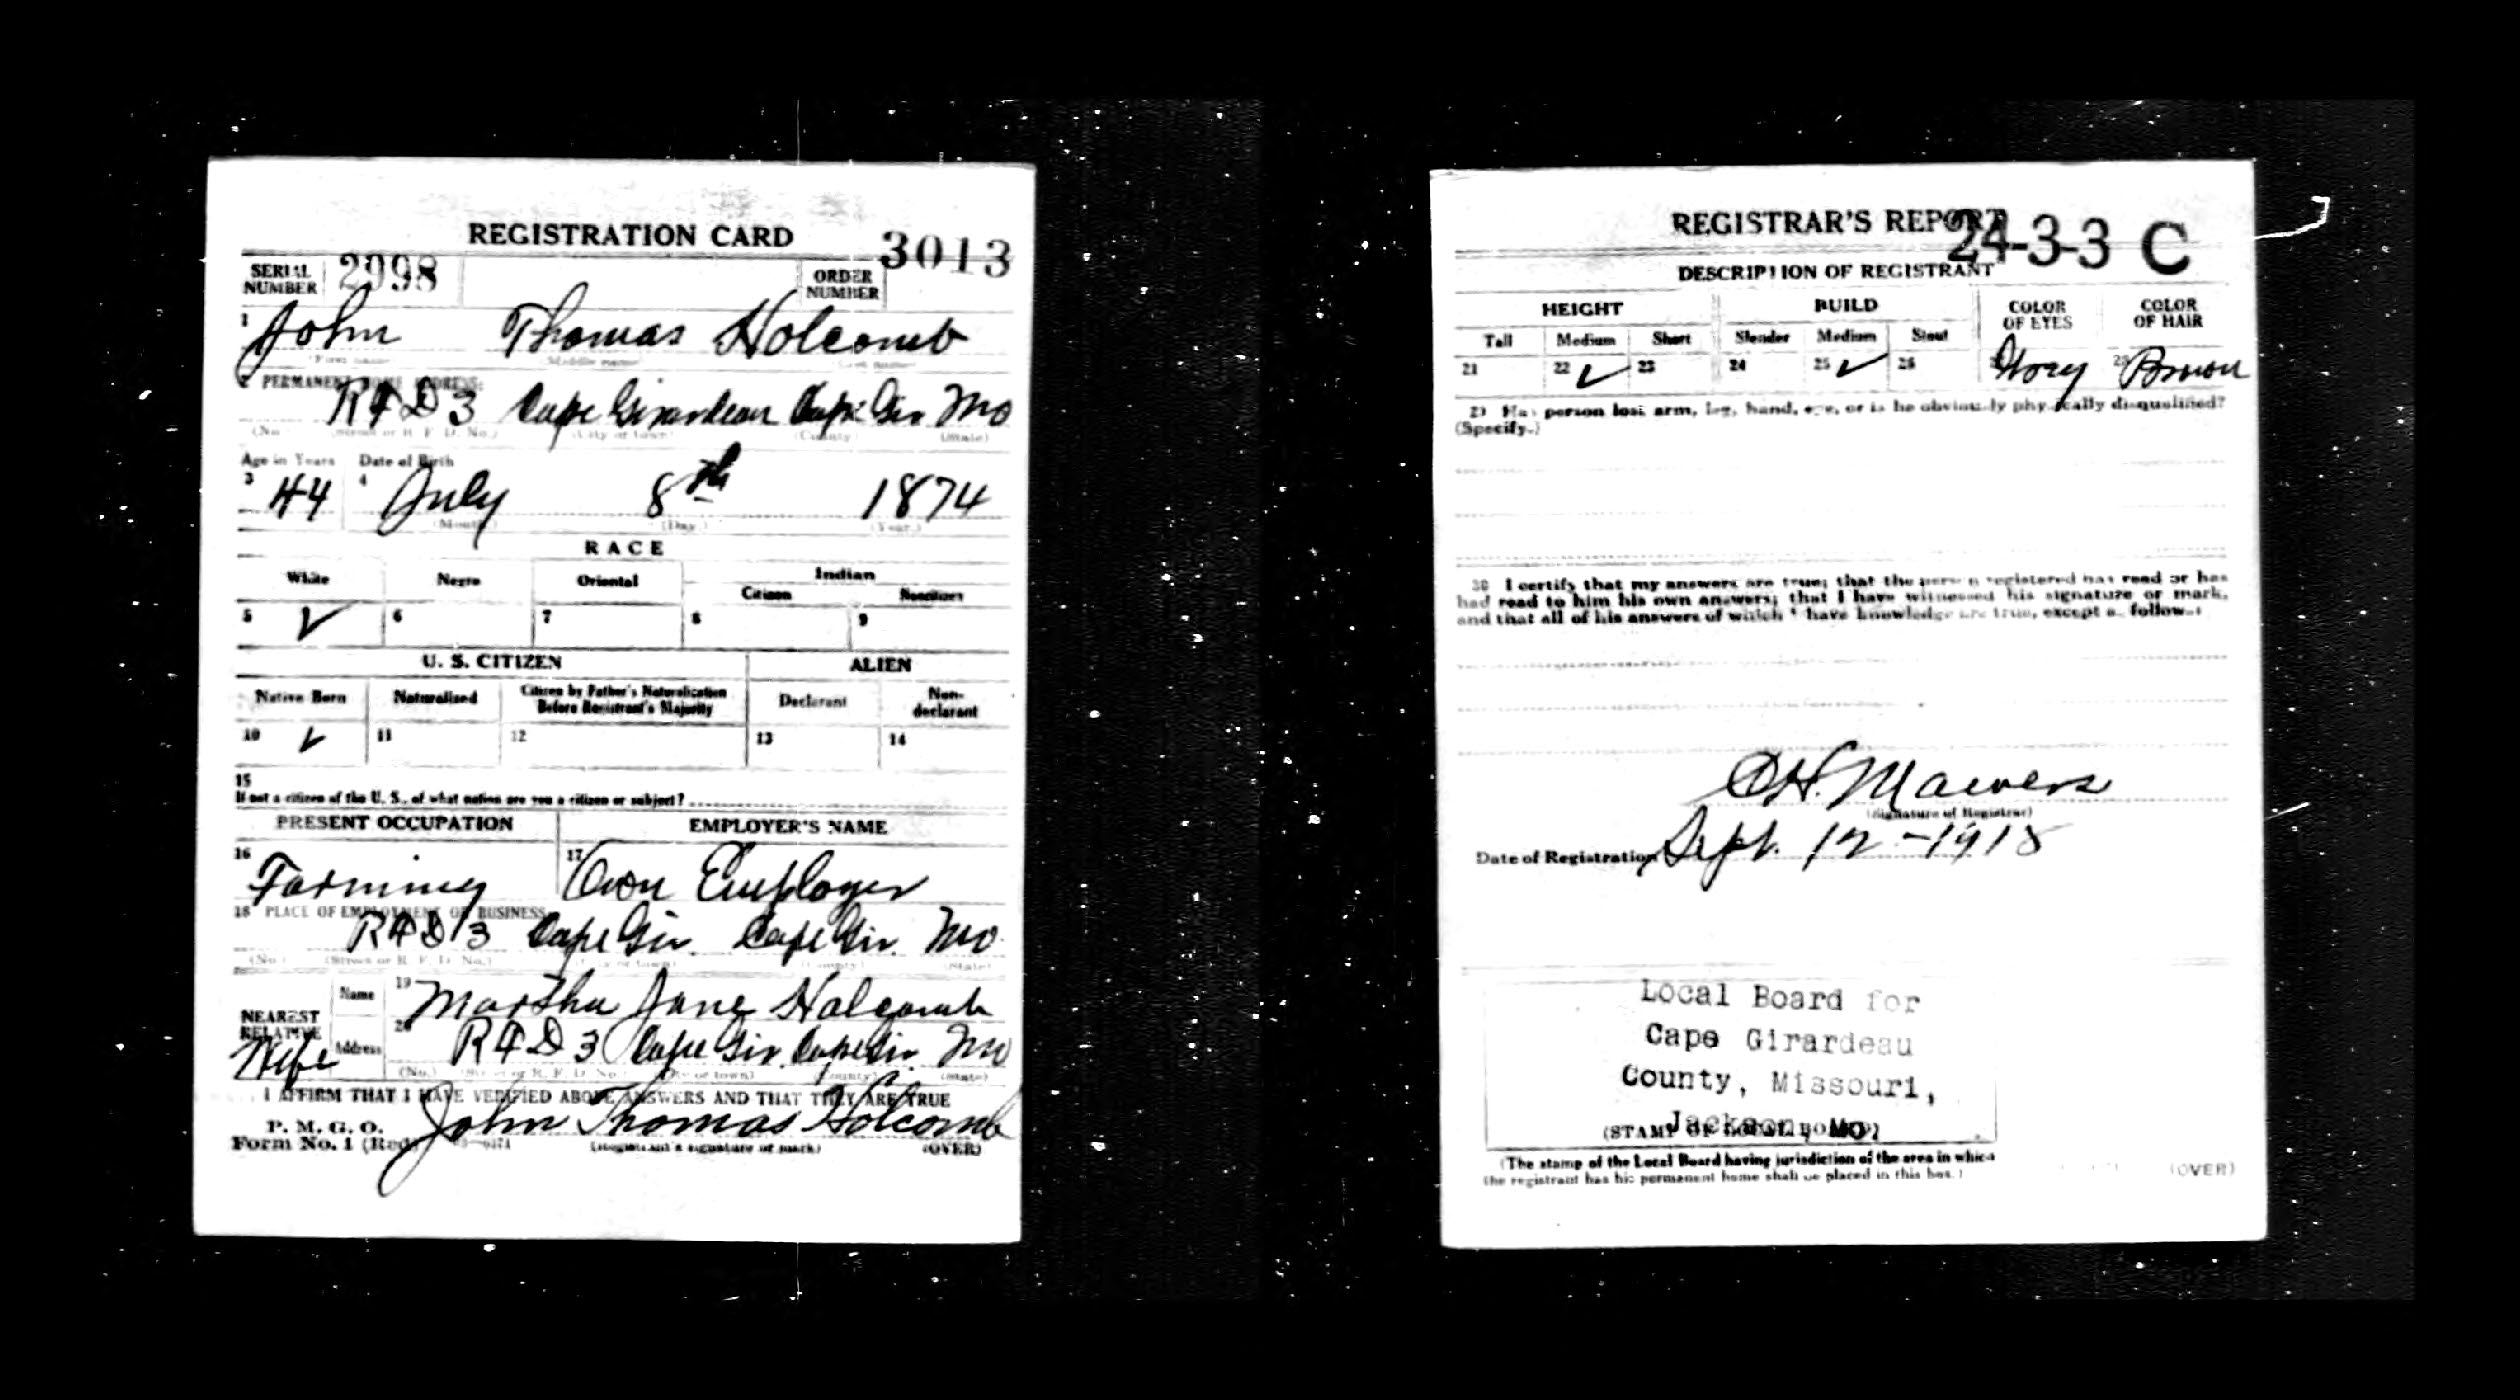 REGISTRATION CARD
3013
SERIAL NUMBER 2998 ORDER NUMBER
1 John Thomas Holcomb
(First name) (Middle name) (Last name)
2 PERMANENT HOME ADDRESS:
RFD 3 Cape Girardeau Cape Gir. Mo
(No.) (Street or R. F. D. No.) (City or town) (County) (State)
Age in Years Date of Birth
3 44 4 July 8th 1874
(Month.) (Day.) (Year.)
RACE
White Negro Oriental Indian
Citizen Noncitizen
5 ✓ 6 7 8 9
U. S. CITIZEN ALIEN
Native Born Naturalized Citizen by Father's Naturalization Before Registrant's Majority Declarant Non-declarant
10 ✓ 11 12 13 14
15
If not a citizen of the U. S., of what nation are you a citizen or subject?
PRESENT OCCUPATION EMPLOYER'S NAME
16 Farming 17 Own Employer
18 PLACE OF EMPLOYMENT OR BUSINESS
RFD 3 Cape Gir. Cape Gir. Mo.
(No.) (Street or R. F. D. No.) (City or town) (County) (State)
NEAREST RELATIVE Name 19 Martha Jane Holcomb
Wife Address 20 RFD 3 Cape Gir. Cape Gir. Mo
(No.) (Street or R. F. D. No.) (City or town) (County) (State)
I AFFIRM THAT I HAVE VERIFIED ABOVE ANSWERS AND THAT THEY ARE TRUE
P. M. G. O.
Form No. 1 (Red) John Thomas Holcomb
(Registrant's signature or mark) (OVER)
REGISTRAR'S REPORT
24-3-3 C
DESCRIPTION OF REGISTRANT
HEIGHT BUILD COLOR OF EYES COLOR OF HAIR
Tall Medium Short Slender Medium Stout
21 22 ✓ 23 24 25 ✓ 26 Brown
29 Has person lost arm, leg, hand, eye, or is he obviously physically disqualified?
(Specify.)
30 I certify that my answers are true; that the person registered has read or has
had read to him his own answers; that I have witnessed his signature or mark,
and that all of his answers of which I have knowledge are true, except as follows:
(Signature of Registrar)
Date of Registration Sept. 12 - 1918
Local Board for
Cape Girardeau
County, Missouri,
Jackson, Mo.
(STAMP OF LOCAL BOARD)
(The stamp of the Local Board having jurisdiction of the area in which
the registrant has his permanent home shall be placed in this box.)
(OVER)